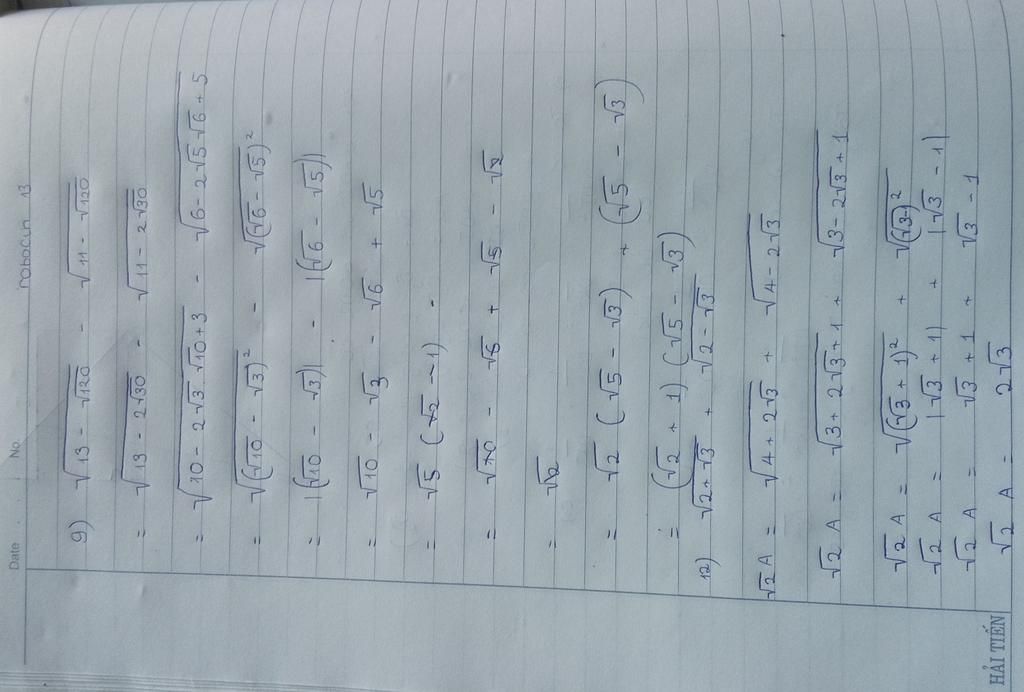 Date . . No.
9) √(13 - √120) - √(11 - √120)
= √(13 - 2√30) - √(11 - 2√30)
= √(10 - 2√3 √10 + 3) - √(6 - 2√5 √6 + 5)
= √((√10 - √3)²) - √((√6 - √5)²)
= |(√10 - √3)| - |(√6 - √5)|
= √10 - √3 - √6 + √5
= √5 (√2 - 1) -
= √10 - √6 + √5 - √3
= √2
= √2 (√5 - √3) + (√5 - √3)
= (√2 + 1) (√5 - √3)
12) √(2 + √3) + √(2 - √3)
√2 A = √(4 + 2√3) + √(4 - 2√3)
√2 A = √(3 + 2√3 + 1) + √(3 - 2√3 + 1)
√2 A = √((√3 + 1)²) + √((√3 - 1)²)
√2 A = |√3 + 1| + |√3 - 1|
√2 A = √3 + 1 + √3 - 1
√2 A = 2√3
HẢI TIẾN